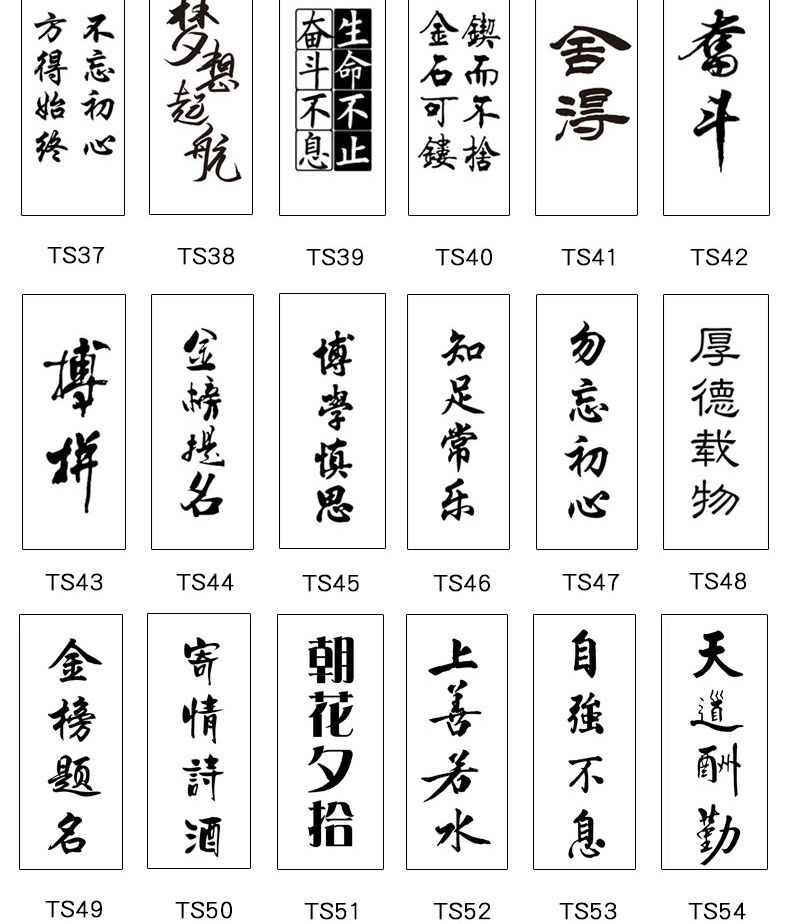 不忘初心
方得始终
梦想起航
生命不止
奋斗不息
鍥而不捨
金石可鏤
舍得
奮斗
TS37
TS38
TS39
TS40
TS41
TS42
搏拼
金榜提名
博學慎思
知足常乐
勿忘初心
厚德载物
TS43
TS44
TS45
TS46
TS47
TS48
金榜题名
寄情詩酒
朝花夕拾
上善若水
自強不息
天道酬勤
TS49
TS50
TS51
TS52
TS53
TS54